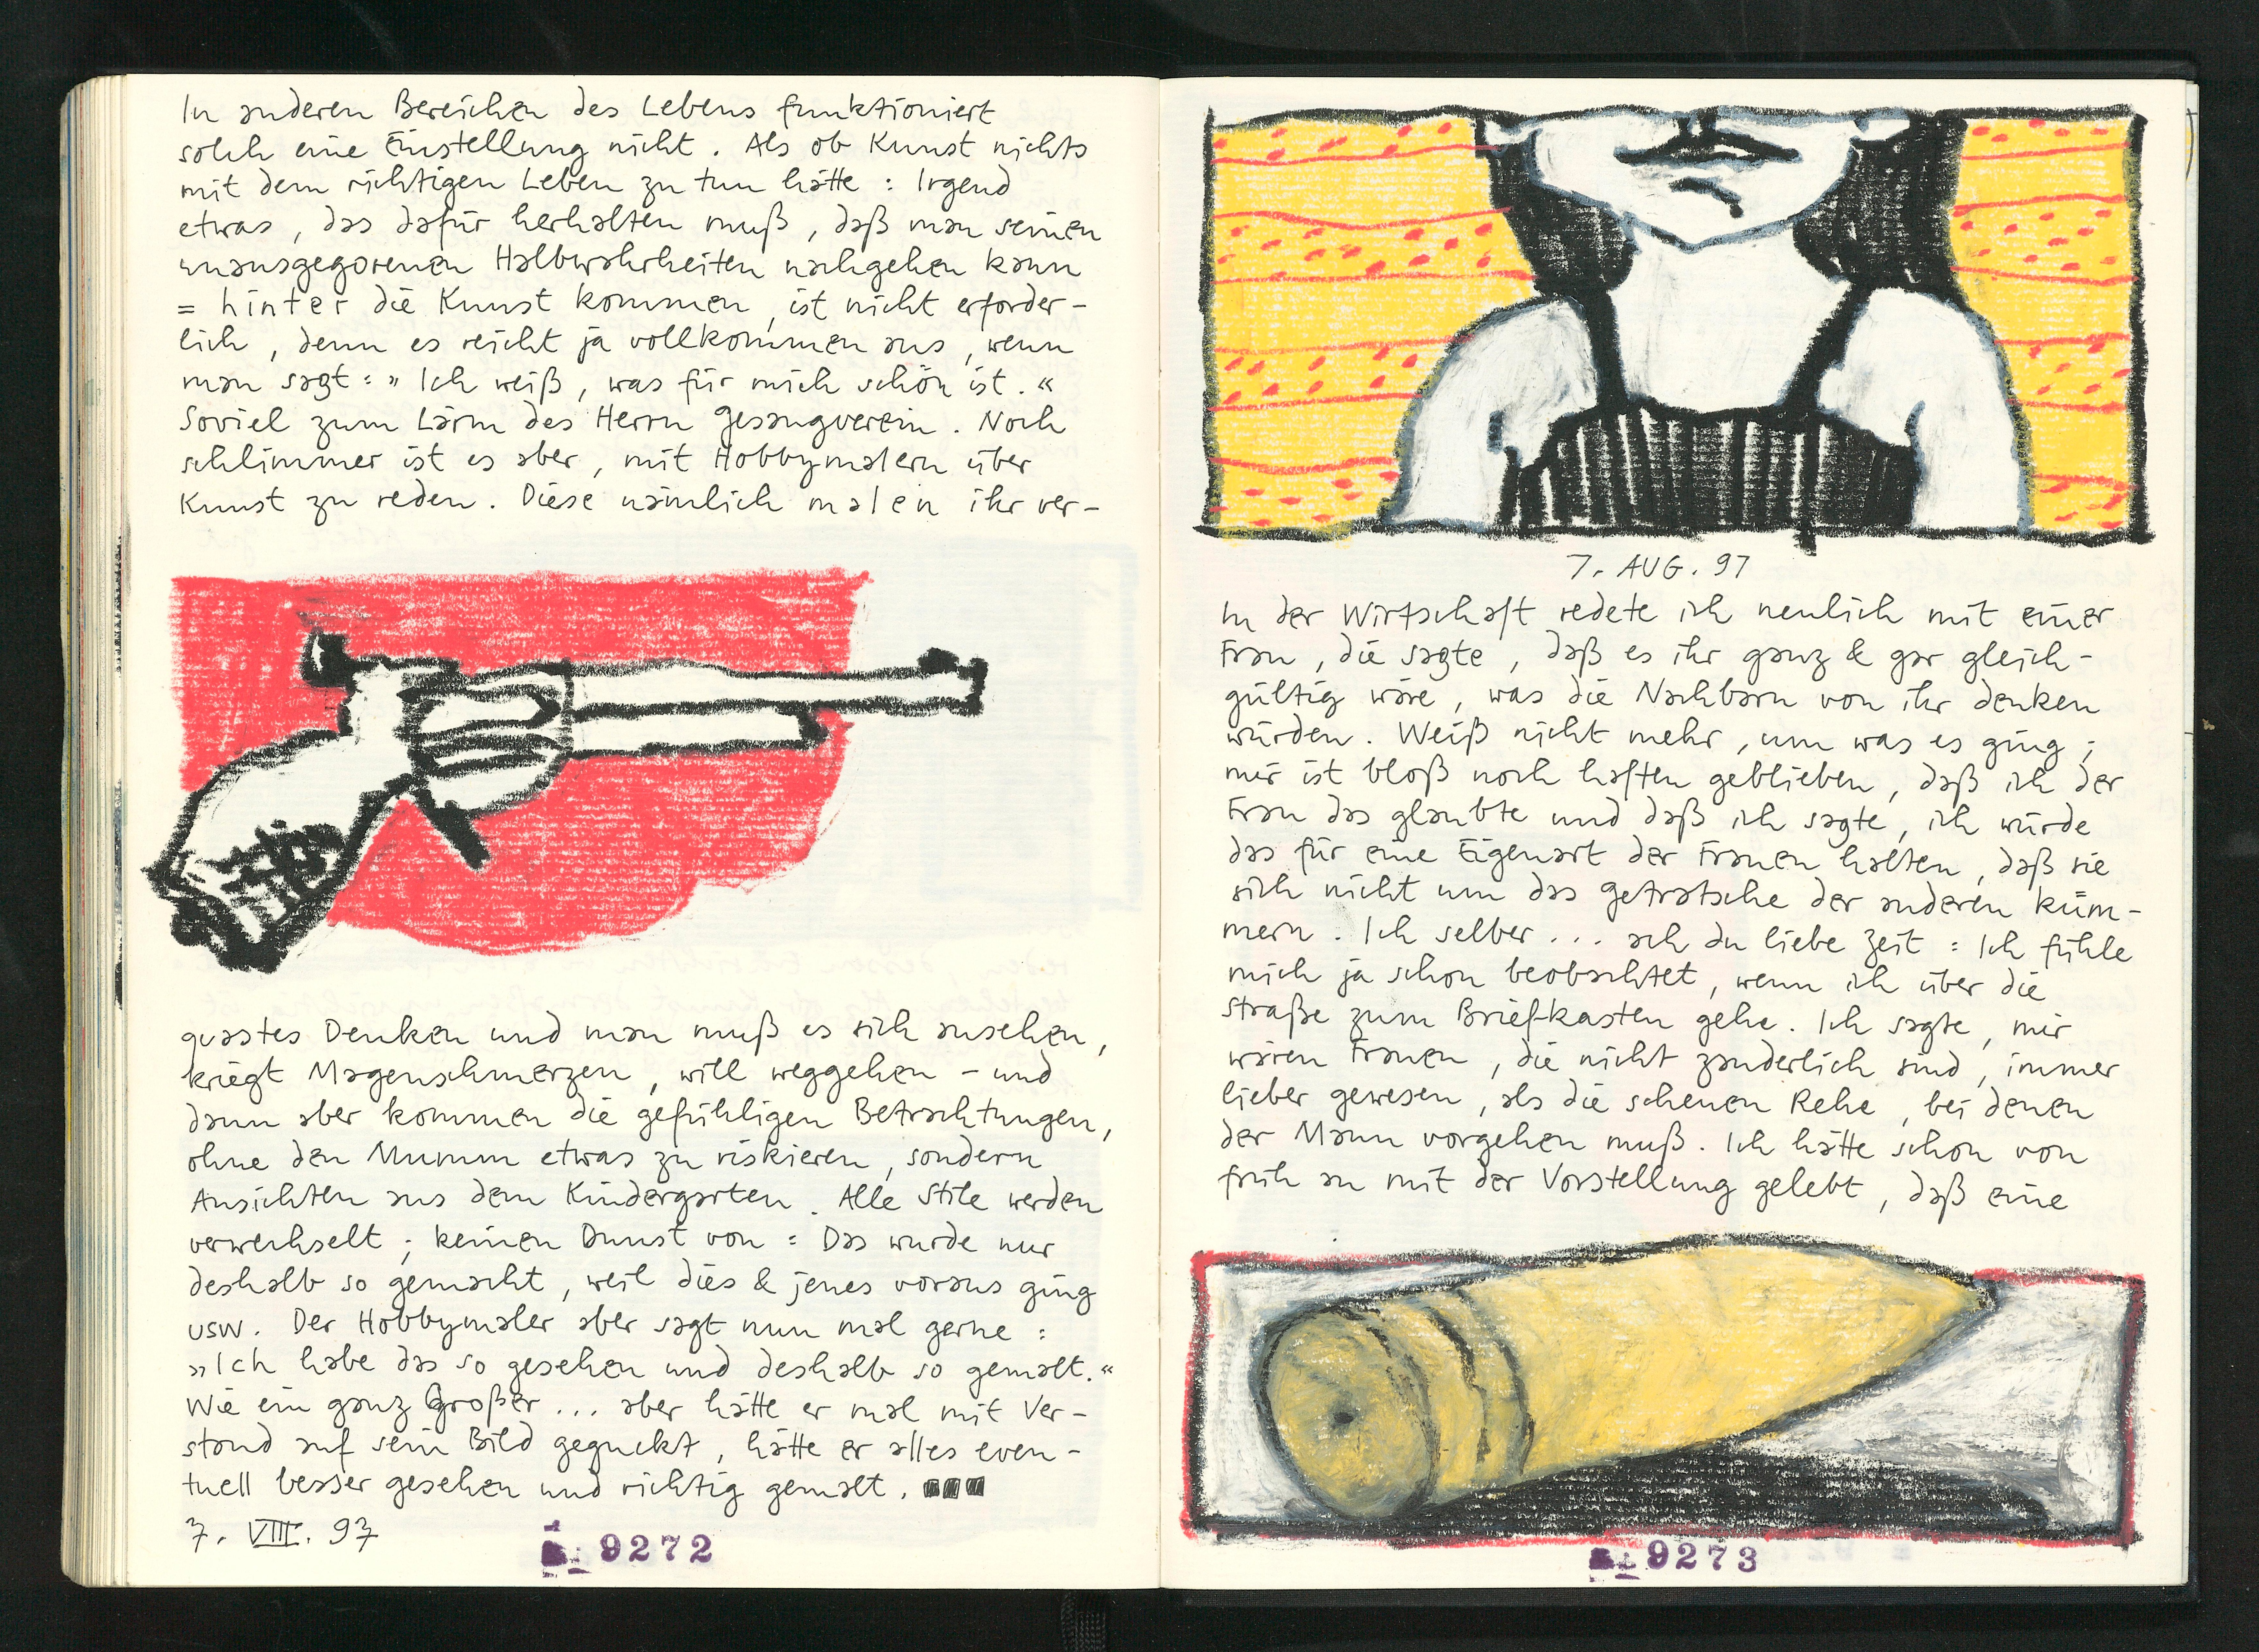 In anderen Bereichen des Lebens funktioniert
solch eine Einstellung nicht. Als ob Kunst nichts
mit dem richtigen Leben zu tun hätte: Irgend
etwas, das dafür herhalten muß, daß man seinen
unausgegorenen Halbwahrheiten nachgehen kann
= hinter die Kunst kommen, ist nicht erforder-
lich, denn es reicht ja vollkommen aus, wenn
man sagt: » Ich weiß, was für mich schön ist. «
Soviel zum Lärm des Herrn Gesangverein. Noch
schlimmer ist es aber, mit Hobbymalern über
Kunst zu reden. Diese nämlich malen ihr ver-
quastes Denken und man muß es sich ansehen,
kriegt Magenschmerzen, will weggehen - und
dann aber kommen die gefühligen Betrachtungen,
ohne den Mumm etwas zu riskieren, sondern
Ansichten aus dem Kindergarten. Alle Stile werden
verwechselt; keinen Dunst von: Das wurde nur
deshalb so gemacht, weil dies & jenes voraus ging
usw. Der Hobbymaler aber sagt nun mal gerne:
»Ich habe das so gesehen und deshalb so gemalt.«
Wie ein ganz Großer... aber hätte er mal mit Ver-
stand auf sein Bild geguckt, hätte er alles even-
tuell besser gesehen und richtig gemalt.
7. VIII. 97
9272
7. AUG. 97
In der Wirtschaft redete ich neulich mit einer
Frau, die sagte, daß es ihr ganz & gar gleich-
gültig wäre, was die Nachbarn von ihr denken
würden. Weiß nicht mehr, um was es ging;
mir ist bloß noch haften geblieben, daß ich der
Frau das glaubte und daß ich sagte, ich würde
das für eine Eigenart der Frauen halten, daß sie
sich nicht um das Getratsche der anderen küm-
mern. Ich selber... ach du liebe Zeit: Ich fühle
mich ja schon beobachtet, wenn ich über die
Straße zum Briefkasten gehe. Ich sagte, mir
wären Frauen, die nicht zauderlich sind, immer
lieber gewesen, als die scheuen Rehe, bei denen
der Mann vorgehen muß. Ich hätte schon von
früh an mit der Vorstellung gelebt, daß eine
9273